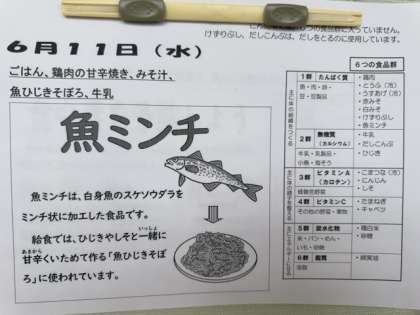 けずりぶし、だしこんぶは、だしをとるのに使用しています。
6月11日(水)
ごはん、鶏肉の甘辛焼き、みそ汁、
魚ひじきそぼろ、牛乳
魚ミンチ
魚ミンチは、白身魚のスケソウダラを
ミンチ状に加工した食品です。
給食では、ひじきやしそと一緒に
いっしょ
甘辛くいためて作る「魚ひじきそぼ
あまから
ろ」に使われています。
6つの食品群
1群 たんぱく質
魚・肉・卵・
豆・豆製品
・鶏肉
・とうふ(冷)
・うすあげ(冷)
・赤みそ
・白みそ
・けずりぶし
・魚ミンチ
2群 無機質
(カルシウム)
牛乳・乳製品・
小魚・海そう
・牛乳
・だしこんぶ
・ひじき
3群 ビタミンA
(カロテン)
緑黄色野菜
・こまつな(冷)
・にんじん
・しそ
4群 ビタミンC
その他の野菜・果物
・たまねぎ
・キャベツ
5群 炭水化物
米・パン・めん・
いも・砂糖
・精白米
・砂糖
6群 脂質